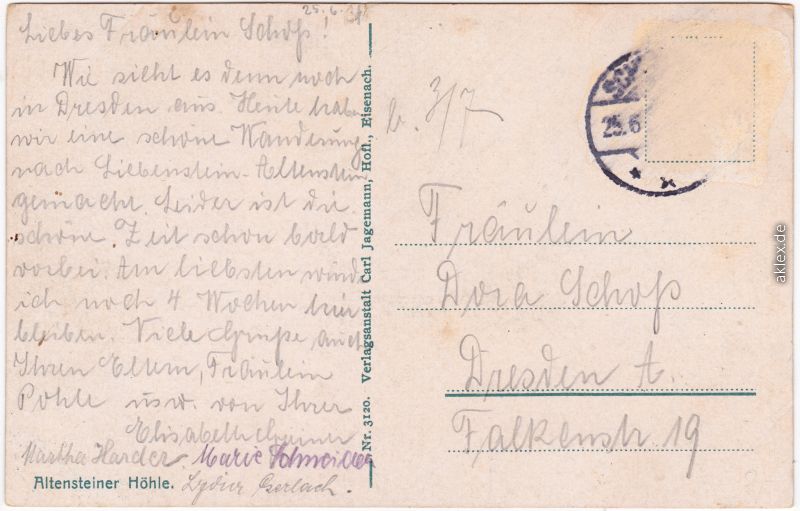 25.6.
Liebes Fräulein Schoß!
Wie sieht es denn noch
in Dresden aus. Heute habe
wir eine schöne Wanderung
nach Liebenstein-Altenstein
gemacht. Leider ist die
schöne Zeit schon bald
vorbei. Am liebsten würde
ich noch 4 Wochen hier
bleiben. Viele Grüße auch
Ihren Eltern, Fräulein
Pohle usw. von Ihrer
Elisabeth
Martha Harder. Marie Schneider
Gerlach.
Altensteiner Höhle.
Nr. 3120. Verlagsanstalt Carl Jagemann, Hofl., Eisenach.
b. 3/7
25.6
Fräulein
Dora Schoß
Dresden A.
Falkenstr 19
aklex.de